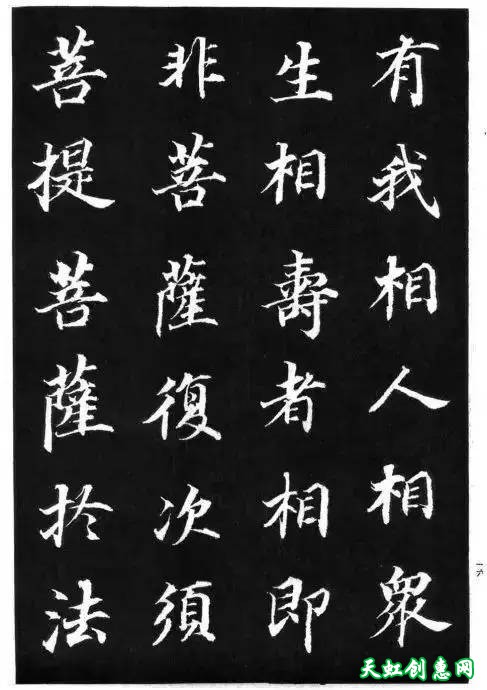 有我相人相眾
生相壽者相即
非菩薩復次須
菩提菩薩於法
一六
天虹创惠网